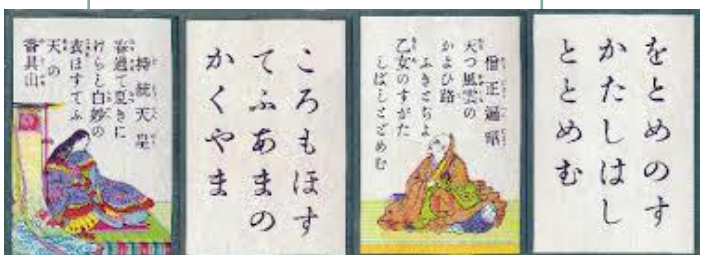 持統天皇
春過て夏きに
けらし白妙の
衣ほすてふ
天の
香具山
ころもほす
てふあまの
かくやま
僧正遍昭
天つ風雲の
かよひ路
ふきとぢよ
乙女のすがた
しばしとどめむ
をとめのす
かたしはし
ととめむ